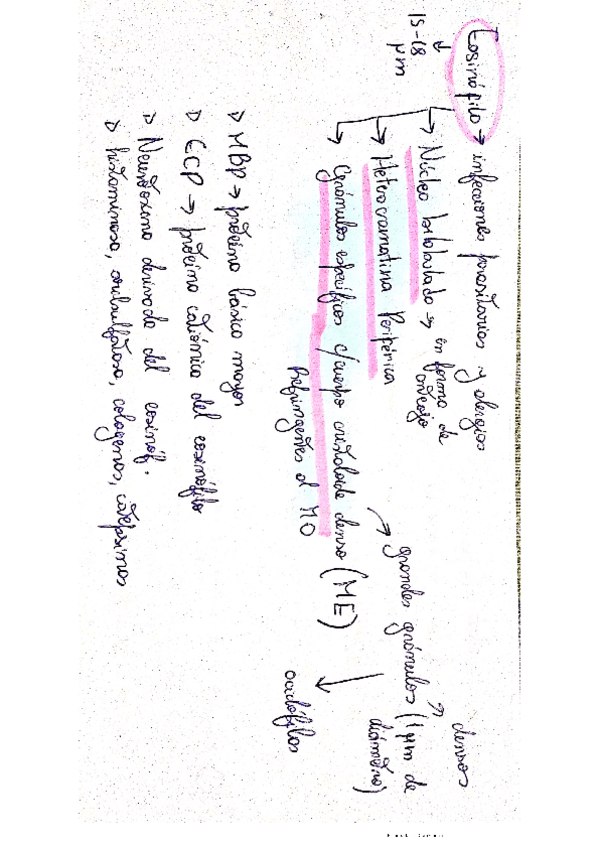 Eosinófilo → infecciones parasitarias y alergias
15-18 μm
↳ Núcleo bilobulado → en forma de anteojo
↳ Heterocromatina Periférica
↳ Gránulos específicos c/cuerpo cristaloide denso (ME)
Refringentes al MO
grandes gránulos (1 μm de diámetro)
densos
acidófilos
▷ MBP → proteína básica mayor
▷ ECP → proteína catiónica del eosinófilo
▷ Neurotoxina derivada del eosinóf.
▷ histaminasa, arilsulfatasa, colagenas, catepsinas